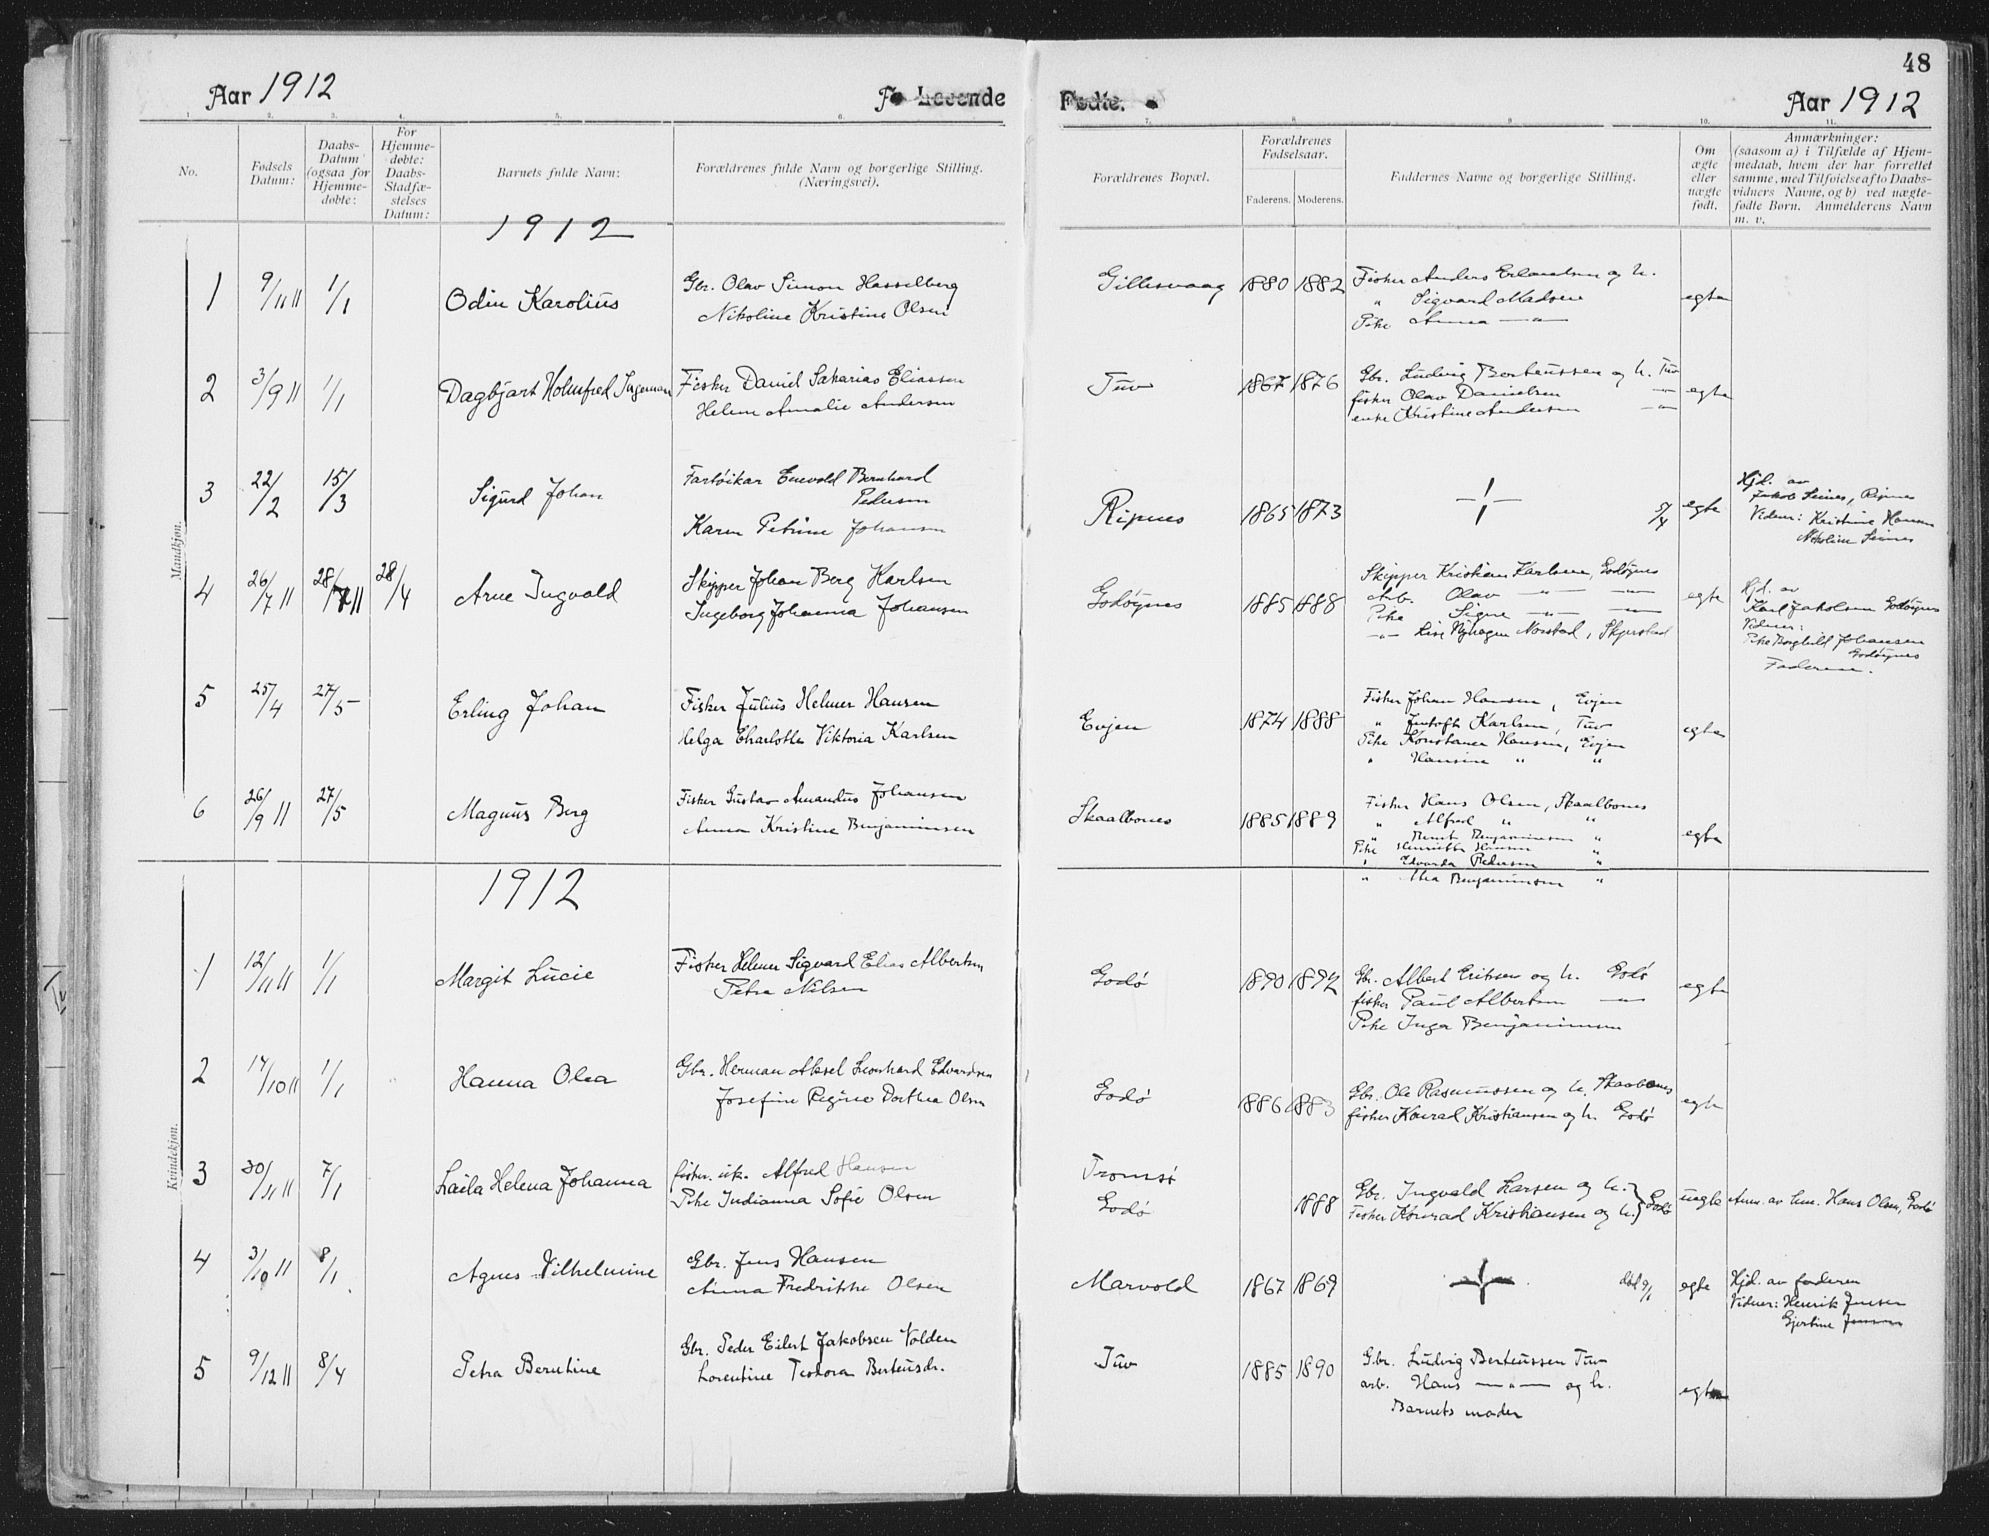 48
Aar 1912
Levende
Fødte.
Aar 1912
1. 2. 3. 4. 5. 6. 7. 8. 9. 10. 11.
No.
Fødsels Datum:
Daabs-Datum (ogsaa for Hjemme-døbte:
For Hjemme-døbte: Daabs-Stadfæ-stelses Datum:
Barnets fulde Navn:
Forældrenes fulde Navn og borgerlige Stilling. (Næringsvei).
Forældrenes Bopæl.
Forældrenes Fødselsaar.
Faderens. Moderens.
Faddernes Navne og borgerlige Stilling.
Om ægte eller uægte født.
Anmærkninger: (saasom a) i Tilfælde af Hjem-medaab, hvem der har forrettet samme, med Tilføielse af to Daabs-vidners Navne, og b) ved uægte-fødte Børn. Anmelderens Navn m. v.
Mandkjøn.
1912
1 9/11 11 1/1 Odin Karolius
Gbr. Olav Simon Hasselberg
Nikoline Kristine Olsen
Gillesvaag 1880 1882
Fisker Anders Erlandsen og h.
" Sigvard Madsen
Pike Anna —"—
egte
2 3/9 11 1/1 Dagbjart Holmfred Ingeman
Fisker Daniel Sakarias Eliassen
Helene Amalie Andersen
Tuv 1867 1876
Gbr. Ludvig Berteussen og h. Tuv
fisker Olav Danielsen —"—
enke Kristine Andersen —"—
egte
3 22/2 15/3 Sigurd Johan
Fartøikar Enevold Bernhard
Pedersen
Karen Petrine Johansen
Ripnes 1865 1873
5/4 egte
Hjd. av
Jakob Seines, Ripnes
Vidner: Kristine Hansen
Nikoline Seines
4 26/7 11 28/7 11 28/4 Arne Ingvald
Skipper Johan Berg Karlsen
Ingeborg Johanna Johansen
Godøynes 1885 1888
Skipper Kristian Karlsen, Godøynes
Arb. Olav —"— —"—
Pike Signe —"— —"—
—"— Lise Nyhagen Norstad, Skjerstad
egte
Hjd. av
Karl Jakobsen Godøynes
Vidner:
Pike Borghild Johansen
Godøynes
Faderen.
5 25/4 27/5 Erling Johan
Fisker Julius Helmer Hansen
Helga Charlotte Viktoria Karlsen
Evjen 1874 1888
Fisker Johan Hansen, Evjen
" Karlsen, Tuv
Pike Konstance Hansen, Evjen
" Hansine " "
egte
6 26/9 11 27/5 Magnus Berg
Fisker Gustav Amandus Johansen
Anna Kristine Benjaminsen
Skaalbones 1885 1889
Fisker Hans Olsen, Skaalbones
" Alfred " "
" Bernt Benjaminsen "
Pike Henriette Hansen "
" Edvarda Pedersen "
" Benjaminsen "
egte
Kvindekjøn.
1912
1 12/11 11 1/1 Margit Lucie
Fisker Helmer Sigvard Elias Albertsen
Petra Nilsen
Godø 1890 1892
Gbr. Albert Eriksen og h. Godø
fisker Paul Albertsen —"—
Pike Inga Benjaminsen
egte
2 14/10 11 1/1 Hanna Olea
Gbr. Herman Aksel Leonhard Edvardsen
Josefine Regine Dorthea Olsen
Godø 1886 1883
Gbr. Ole Rasmussen og h. Skaalbones
fisker Konrad Kristiansen og h. Godø
egte
3 30/11 11 7/1 Laila Helena Johanna
fisker. uk. Alfred Hansen
Pike Indianna Sofie Olsen
Tromsø
Godø 1888
Gbr. Ingvald Larsen og h.
Fisker Konrad Kristiansen og h. } Godø
uegte
Anm. av Hans Olsen, Godø
4 3/10 11 8/1 Agnes Vilhelmine
Gbr. Jens Hansen
Anna Fredrikke Olsen
Marvold 1867 1869
død 9/1
egte
Hjd. av faderen
Vidner: Henrik Jensen
Gjertine Jensen
5 9/12 11 8/4 Petra Berntine
Gbr. Peder Eilert Jakobsen Volden
Lorentine Teodora Berteusdr.
Tuv 1885 1890
Gbr. Ludvig Berteussen Tuv
arb. Hans —"— og h.
Barnets moder
egte